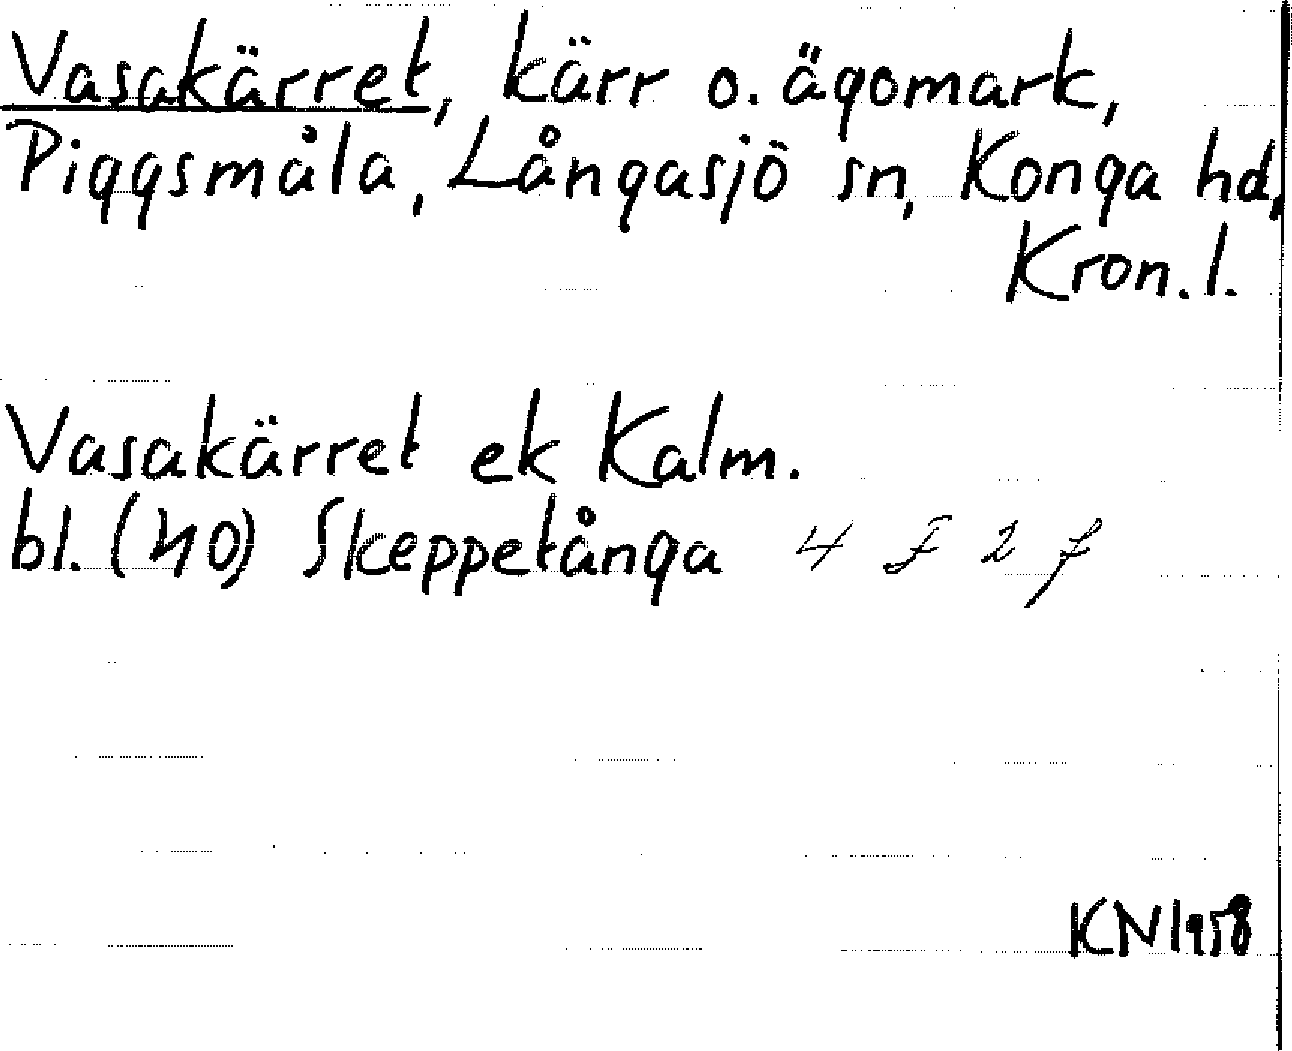 Vasakärret, kärr o. ägomark,
Piggsmåla, Långasjö sn, Konga hd,
Kron.l.
Vasakärret ek Kalm.
bl. (40) Skeppetånga 4 F 2 f
KN 1958